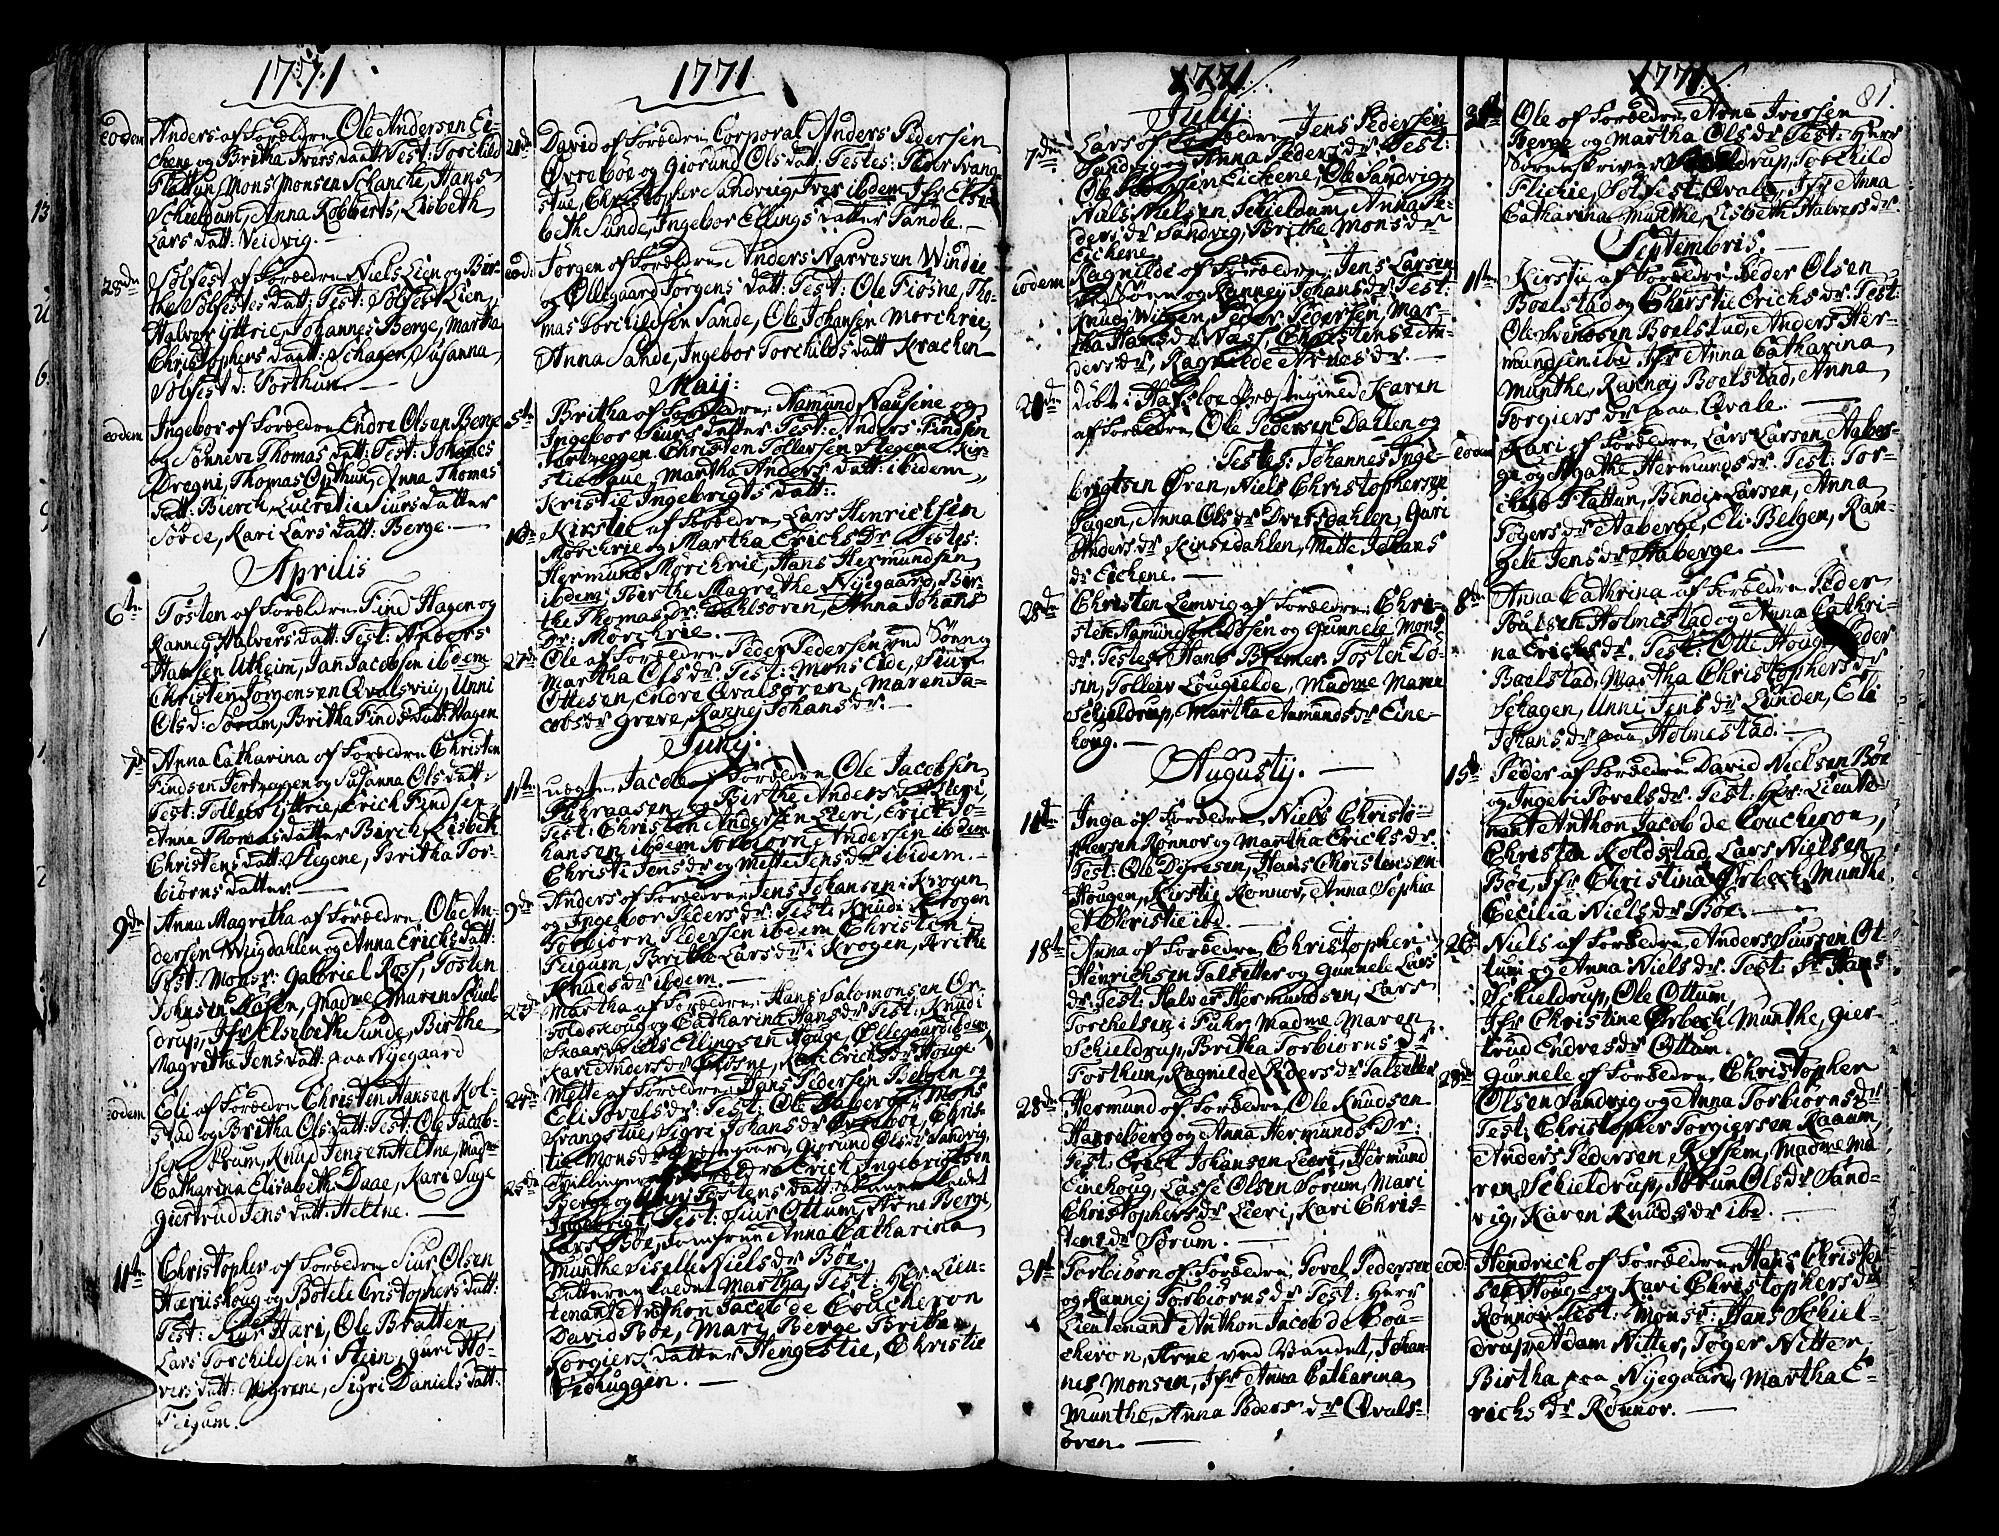 1771
eodem Anders af Forældre Ole Andersen Ei-
chene og Britha Ivers datt: Test: Torchild
Flattun, Mons Monsen Schanche, Hans
Schieldum, Anna Robberts, Lisbeth
Lars datt: Veidvig.
28de Sølfest af Forældre Niels Lien og Bir-
the Sølfestes datt: Test: Sølfest Lien
Halvor Yttrie, Johannes Berge, Martha
Christophers datt: Schagen, Susanna
Sølfest d: Forthun.
eodem Ingebor af Forældre Endre Olsen Berge
og Sønneve Thomas datt: Test: Johannes
Dregni, Thomas Opthun, Anna Thomas
datt: Bierch, Lucretie Siurs datter
Sørde, Kari Lars datt: Berge.
Aprilis
6te Tosten af Forældre Find Hagen og
Ranney Halvers datt: Test: Anders
Hansen Utheim, Jan Jacobsen ibdem
Christen Jørgensen Qvalsviig, Unni
Ols d: Sørum, Britha Finds datt: Hagen
7de Anna Catharina af Forældre Christen
Findsen Fortræggen og Susanna Ols datt:
Test: Tolleiv Yttrie, Erich Findsen
Anna Thomas datter Birch, Lisbeth
Christens datt: Hegene, Britha Tor-
biørns datter.
9de Anna Magretha af Forældre Ole An-
dersen Wigdahlen og Anna Erichs datt:
Test: Monsr: Gabriel Ross, Tosten
Johnsen Hafen, Madme Maren Schiel
drup, Jfr Elsebeth Sunde, Birthe
Magrethe Jens datt: paa Nyegaard
eodem Eli af Forældre Christen Hansen Kol-
stad og Britha Ols datt: Test: Ole Jacob-
sen Krum, Knud Jensen Heltne, Madm
Catharina Elisabeth Daae, Kari Suge
Giertrud Jens datt: Heltne.
11te Christopher af Forældre Siur Olsen
Hæriishoug og Botele Cristophers datt:
Test: Siur Hari, Ole Bratten
Lars Torchildsen i Stein, Guri Ho-
vers datt: Vigrene, Sigri Daniels datt:
Feigum.
1771
21de David af Forældre Corporal Anders Pedersen
Øvrebøe og Giorund Ols datt: Testes: Peder Svang-
stue, Christopher Sandvig, Iver ibdem, Jfr Else-
beth Sunde, Ingebor Ellings datter Sandle.
eod: Jørgen af Forældre Anders Narvesen Windie
og Øllegaard Jørgens datt: Test: Ole Fiøsne, Tho-
mas Torchildsen Sande, Ole Johansen Morchrie,
Anna Sande, Ingebor Torchilds datt Krachen
Maij:
5te Britha af Forældre Aamund Nausine og
Ingebor Siurs datter Test: Anders Findsen
Fortræggen Christen Tollefsen Hegene, Kir-
stie Haue, Martha Anders datt: ibidem
Kristie Ingebrigts datt:
10de Kirstie af Forældre Lars Henrichsen
Morchrie og Martha Erichs Dr Testes:
Hermund Morchrie, Hans Hermundsen
ibdem: Birthe Magrethe Nyegaard, Bir-
the Thomas dr: Dahlsøren, Anna Johans
Dr: Morchrie.
27de Ole af Forældre Peder Pedersen ved Sønne
Martha Ols dr: Test: Mons Eide, Siur
Ottesen, Endre Qvalsøren, Maren Ja-
cobs dr Greve, Ranney Johans dr:
Junij:
11te uegte Jacob af Forældre Ole Jacobsen
Fuhraasen og Birthe Anders dr Lieri,
Test: Christen Andersen Lieri, Erich Jo-
hansen ibdem Torbiørn Andersen ibdem
Christi Jens dr og Mette Jens dr ibidem.
9de Anders af Forældre Jens Johansen i Krogen
og Ingebor Peders dr: Test: Knud i Krogen
Torbiørn Pedersen ibdem Christen
Feigum, Brithe Lars dr i Krogen, Brithe
Knuds dr ibdem.
23de Martha af Forældre Hans Salomonsen Or-
foldshoug og Catharine Hans dr Test: Knud i
Skaar Niels Ellingsen Houge, Øllegaard ibdem
Kari Anders dr Fiøsne, Kari Erichs dr Houge
24de Mette af Forældre Hans Pedersen Belgen og
Eli Povels dr: Test: Ole Aaberge, Mons
Svangstue, Sigri Johans dr Øvrebøe, Chris-
tie Mons dr Nedregaard, Giorund Ols dr Sandvig,
25de Tvillinger af Forældre Erich Ingebrigtsen
Berge og Anna Tostens datt: af Navn kaldet
Ingebrigt, Test: Siur Ottum, Arne Berge,
Lars Bøe, Jomfrue Anna Catharina
Munthe Siselle Niels dr Bøe.
Datteren kaldet Martha, Test: Her Lieu-
tenant Anthon Jacob de Coucheron
David Bøe, Mari Berge Britha
Torgiers datter Hengestie, Christie
Vedhuggen.
1771
July:
7de Lars af Forældre Jens Pedersen
Sandvig og Anna Peders dr Test:
Ole Andersen Eichene, Ole Sandvig,
Niels Nielsen Schieldum, Anna Pe-
ders dr Sandvig, Brithe Mons dr
Eichene.
eodem Ragnilde af Forældre Jens Larsen
Sønen og Ranney Johans dr Test:
Knud Witgen, Peder Pedersen, Mar-
tha Hans dr Næss, Christense An-
ders dr, Ragnilde Arnes dr.
20de Døbt i Hafsloe Præstegield Karen
af Forældre Ole Pedersen Dahlen og
Testes: Johannes Inge-
brigtsen Øren, Niels Christophersen
Hagen, Anna Ols dr Drægsdahlen, Guri
Anders dr Kinsedahlen, Mette Johans
dr Eichene.
28de Christen Lemvig af Forældre Chri-
sten Aamundsen Døsen og Gunnele Mons
dr. Testes: Hans Bremer, Tosten Dø-
sen, Tolleiv Lougielde, Madme Maren
Schieldrup, Martha Aamunds dr Eine-
houg.
Augusty.
11te Inga af Forældre Niels Christo-
phersen Rønnov og Martha Erichs dr:
Test: Ole Dyresen, Hans Christensen
Hougen, Kirstie Ronnov, Anna Sophia
et Christie ibd
18te Anna af Forældre Christopher
Henrichsen Talsetter og Gunnele Lars
dr: Test: Halver Hermundsen, Lars
Torchelsen i Fuhr, Madme Maren
Schieldrup, Britha Torbiørns dr
Forthun, Ragnilde Peders dr Talsetter
28de Hermund af Forældre Ole Knudsen
Hanneberg og Anna Hermunds Dr:
Test: Erich Johansen Lieri, Hermund
Einehoug, Lasse Olsen Sørum, Mari
Christophers dr Lieri, Kari Chris-
tens dr Sørum.
31te Torbiørn af Forældre Povel Pedersen
og Ranney Torbiørns dr Test: Herr
Lieutenant Anthon Jacob de Cou-
cheron, Arne ved Vandet, Johan-
nes Monsen, Jfr Anna Catharina
Munthe, Anna Peders dr Qvals-
øren.
1771. 81.
31te Ole af Forældre Arne Iversen
Berge og Martha Ols dr Test: Herr
Sorenskriver Schieldrup, Torchild
Flichie, Sølfest Qvale, Jfr Anna
Catharina Munthe, Lisbeth Halvers dr.
Septembris.
1ste Kirstie af Forældre Peder Olsen
Boelstad og Chirstie Erichs dr Test
Ole Svendsen Boelstad, Anders Her-
mundsen ibd Jfr Anna Catharina
Munthe, Rannej Boelstad, Anna
Torgiers dr paa Qvale.
eodem Kari af Forældre Lars Larsen Halver-
ge og Agathe Hermunds dr. Test: Tor-
child Flattun, Bendix Larsen, Anna
Togers dr Aaberge, Eli Belgen, Ran-
gele Jens dr Aaberge.
8de Anna Cathrina af Forældre Peder
Poulsen Holmestad og Anna Cathri-
na Erichs dr. Test: Otte Houg, Peder
Boelstad, Martha Christophers dr
Schagen, Unni Jens dr Lunden, Eli
Johans dr paa Holmestad.
15de Peder af Forældre David Nielsen Bøe
og Ingeri Povels dr. Test: Her: Lieute-
nant Anthon Jacob de Coucheron,
Christen Koldstad Lars Nielsen
Bøe, Jfr Christina Ørbech Munthe,
Cecilia Niels dr Bøe.
26 Niels af Forældre Anders Siursen Ot-
tum og Anna Niels dr. Test: Sr Hans
Schieldrup, Ole Ottum,
Jfr Christine Ørbech Munthe, Gier-
trud Endres dr Ottum.
29de Gunnele af Forældre Christopher
Olsen Sandvig og Anna Torbiørns dr
Test: Christopher Torgiersen Kaaum,
Anders Pedersen Refsem, Madme Ma-
ren Schieldrup, Jorun Ols dr Sand-
vig, Karen Knuds dr ibd
eod: Hendrich af Forældre Hans Christen
sen Houge og Kari Christophers dr
Rønnov Test: Monsr: Hans Schiel-
drup, Adam Nitter, Toger Nitter,
Birtha paa Nyegaard, Martha E-
richs dr Rønnov.